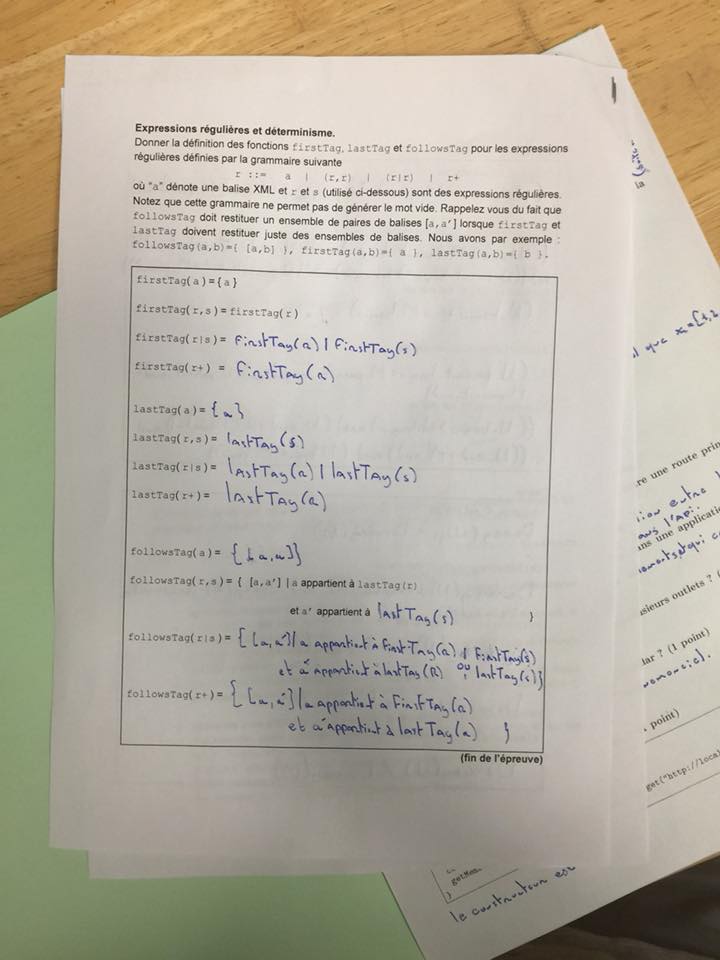 Expressions régulières et déterminisme.
Donner la définition des fonctions firstTag, lastTag et followsTag pour les expressions
régulières définies par la grammaire suivante
r ::= a | (r,r) | (r|r) | r+
où "a" dénote une balise XML et r et s (utilisé ci-dessous) sont des expressions régulières.
Notez que cette grammaire ne permet pas de générer le mot vide. Rappelez vous du fait que
followsTag doit restituer un ensemble de paires de balises [a,a'] lorsque firstTag et
lastTag doivent restituer juste des ensembles de balises. Nous avons par exemple :
followsTag(a,b)={ [a,b] }, firstTag(a,b)={ a }, lastTag(a,b)={ b }.
firstTag(a)={a}
firstTag(r,s)=firstTag(r)
firstTag(r|s)= FirstTag(r) | FirstTag(s)
firstTag(r+) = FirstTag(r)
lastTag(a)= {a}
lastTag(r,s)= lastTag(s)
lastTag(r|s)= lastTag(r) | lastTag(s)
lastTag(r+)= lastTag(r)
followsTag(a)= {[a,a]}
followsTag(r,s)= { [a,a'] | a appartient à lastTag(r)
et a' appartient à lastTag(s) }
followsTag(r|s)= {[a,a'] | a appartient à FirstTag(r) | FirstTag(s)
et a' appartient à lastTag(R) ou lastTag(s)}
followsTag(r+)= {[a,a'] | a appartient à FirstTag(r)
et a' appartient à lastTag(r) }
(fin de l'épreuve)
la
que
re une route prin
ans l'api.
ans une applicati
sieurs outlets ? (
lar ? (1 point)
point)
get("http://loca
getMes
}
le constructeur est